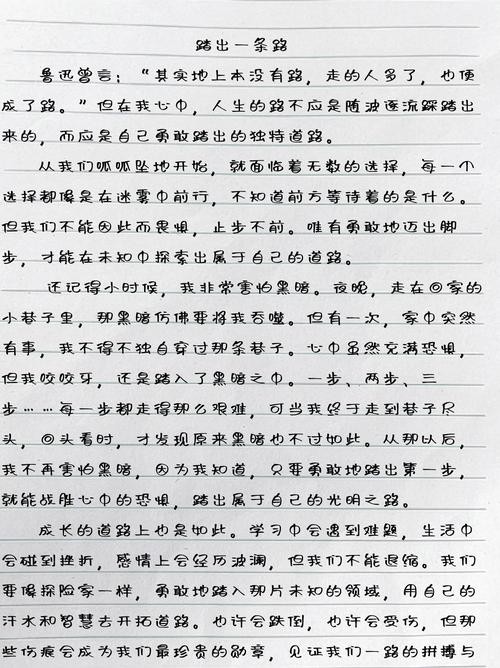 踏出一条路
鲁迅曾言：“其实地上本没有路，走的人多了，也便
成了路。”但在我心中，人生的路不应是随波逐流踩踏出
来的，而应是自己勇敢踏出的独特道路。
从我们呱呱坠地开始，就面临着无数的选择，每一个
选择都像是在迷雾中前行，不知道前方等待着的是什么。
但我们不能因此而畏惧，止步不前。唯有勇敢地迈出脚
步，才能在未知中探索出属于自己的道路。
还记得小时候，我非常害怕黑暗。夜晚，走在回家的
小巷子里，那黑暗仿佛要将我吞噬。但有一次，家中突然
有事，我不得不独自穿过那条巷子。心中虽然充满恐惧，
但我咬咬牙，还是踏入了黑暗之中。一步、两步、三
步……每一步都走得那么艰难，可当我终于走到巷子尽
头，回头看时，才发现原来黑暗也不过如此。从那以后，
我不再害怕黑暗，因为我知道，只要勇敢地踏出第一步，
就能战胜心中的恐惧，踏出属于自己的光明之路。
成长的道路上也是如此。学习中会遇到难题，生活中
会碰到挫折，感情上会经历波澜，但我们不能退缩。我们
要像探险家一样，勇敢地踏入那片未知的领域，用自己的
汗水和智慧去开拓道路。也许会跌倒，也许会受伤，但那
些伤痕会成为我们最珍贵的勋章，见证我们一路的拼搏与